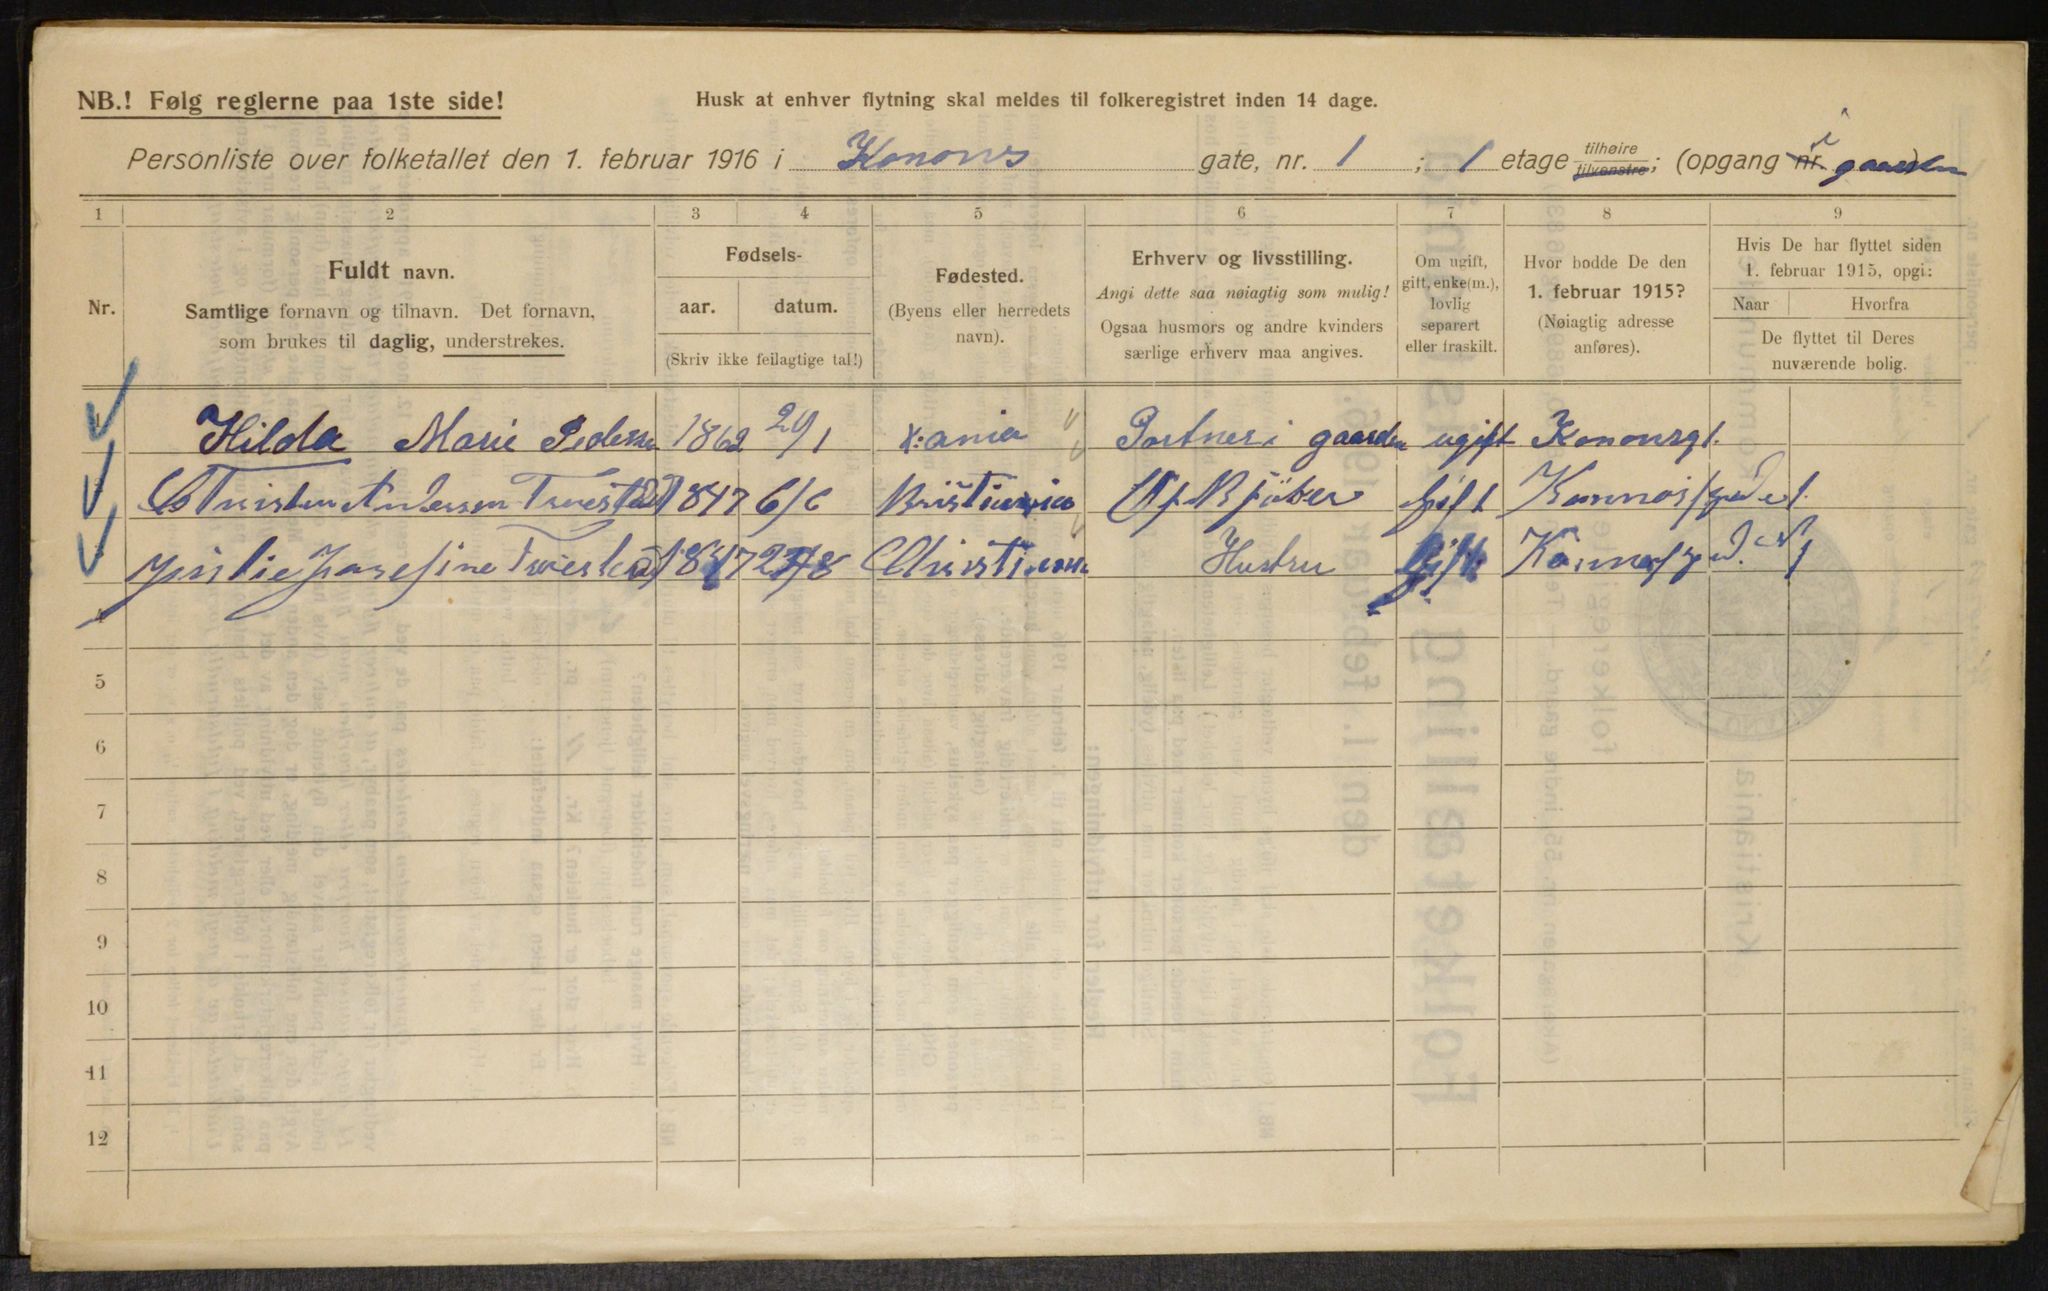 NB.! Følg reglerne paa 1ste side!
Husk at enhver flytning skal meldes til folkeregistret inden 14 dage.
Personliste over folketallet den 1. februar 1916 i Konows gate, nr. 1 ; 1 etage tilhøire tilvenstre; (opgang nr. i gaarden
1 2 3 4 5 6 7 8 9
Nr.
Fuldt navn.
Samtlige fornavn og tilnavn. Det fornavn,
som brukes til daglig, understrekes.
Fødsels-
aar. datum.
(Skriv ikke feilagtige tal!)
Fødested.
(Byens eller herredets
navn).
Erhverv og livsstilling.
Angi dette saa nøiagtig som mulig!
Ogsaa husmors og andre kvinders
særlige erhverv maa angives.
Om ugift,
gift, enke(m.),
lovlig
separert
eller fraskilt.
Hvor bodde De den
1. februar 1915?
(Nøiagtig adresse
anføres).
Hvis De har flyttet siden
1. februar 1915, opgi:
Naar Hvorfra
De flyttet til Deres
nuværende bolig.
Hilda Marie Pedersen 1862 29/1 X:ania Portner i gaarden ugift Konowsg 1.
Andersen 1847 6/6 Kristiania Gift
Josefine 1847 8 Christiania Hustru Gift
4
5
6
7
8
9
10
11
12